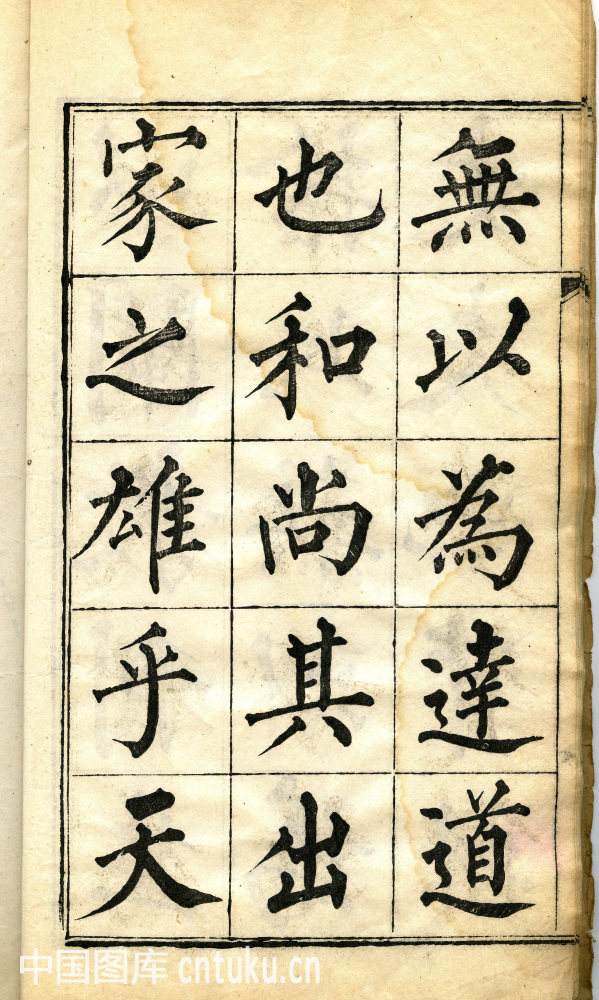 無以為達道
也和尚其出
家之雄乎天
中国图库 cntuku.cn